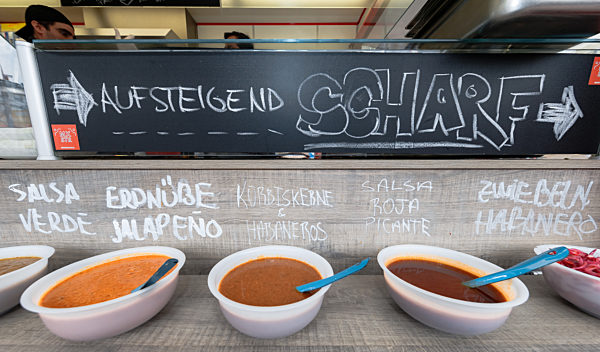 AUFSTEIGEND SCHARF
SALSA
VERDE
ERDNÜßE
JALAPEÑO
KÜRBISKERNE
&
HABANEROS
SALSA
ROJA
PICANTE
ZWIEBELN
HABANERO